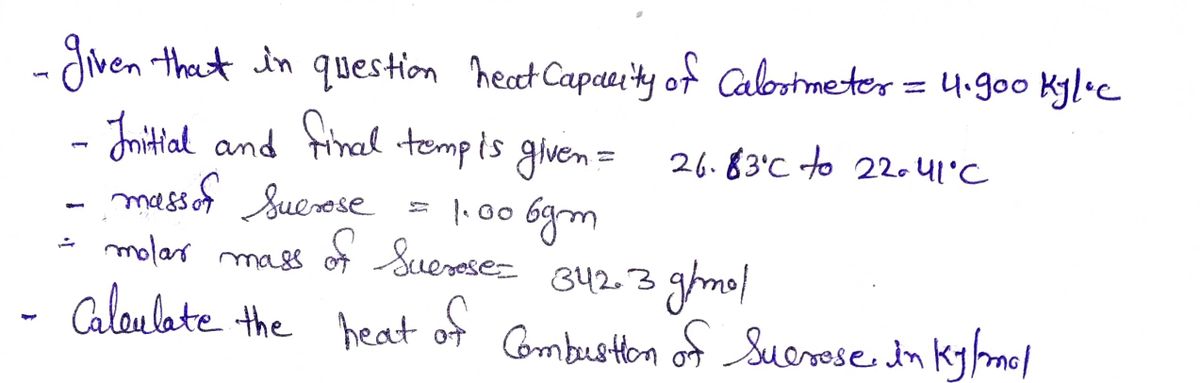 - Given that in question heat Capacity of Calorimeter = 4.900 KJ/°C
- Initial and final temp is given = 26.83°C to 22.41°C
- mass of Sucrose = 1.00 6gm
- molar mass of Sucrose= 342.3 g/mol
- Calculate the heat of Combustion of Sucrose in KJ/mol